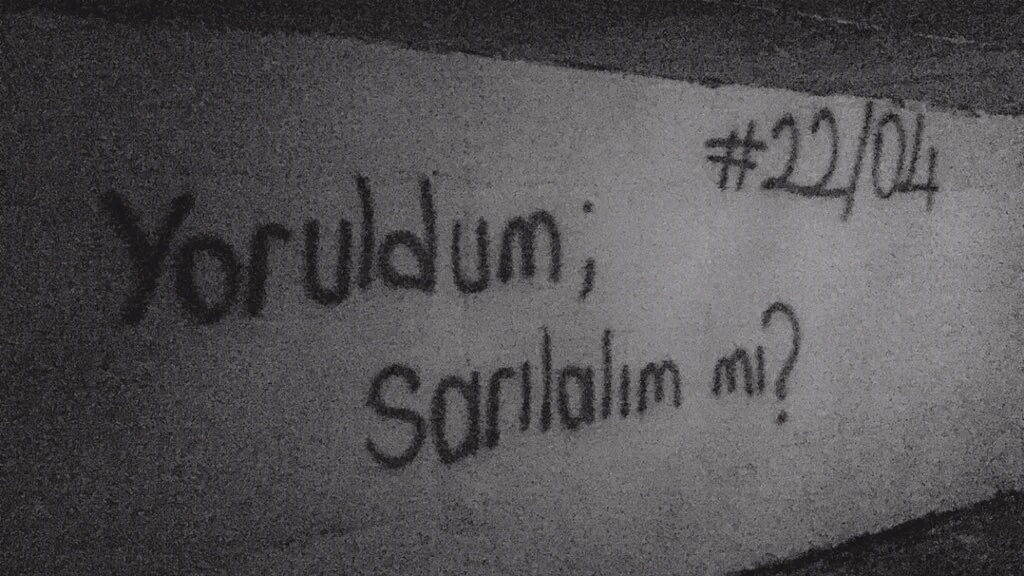 #22/04
Yoruldum;
sarılalım mı?